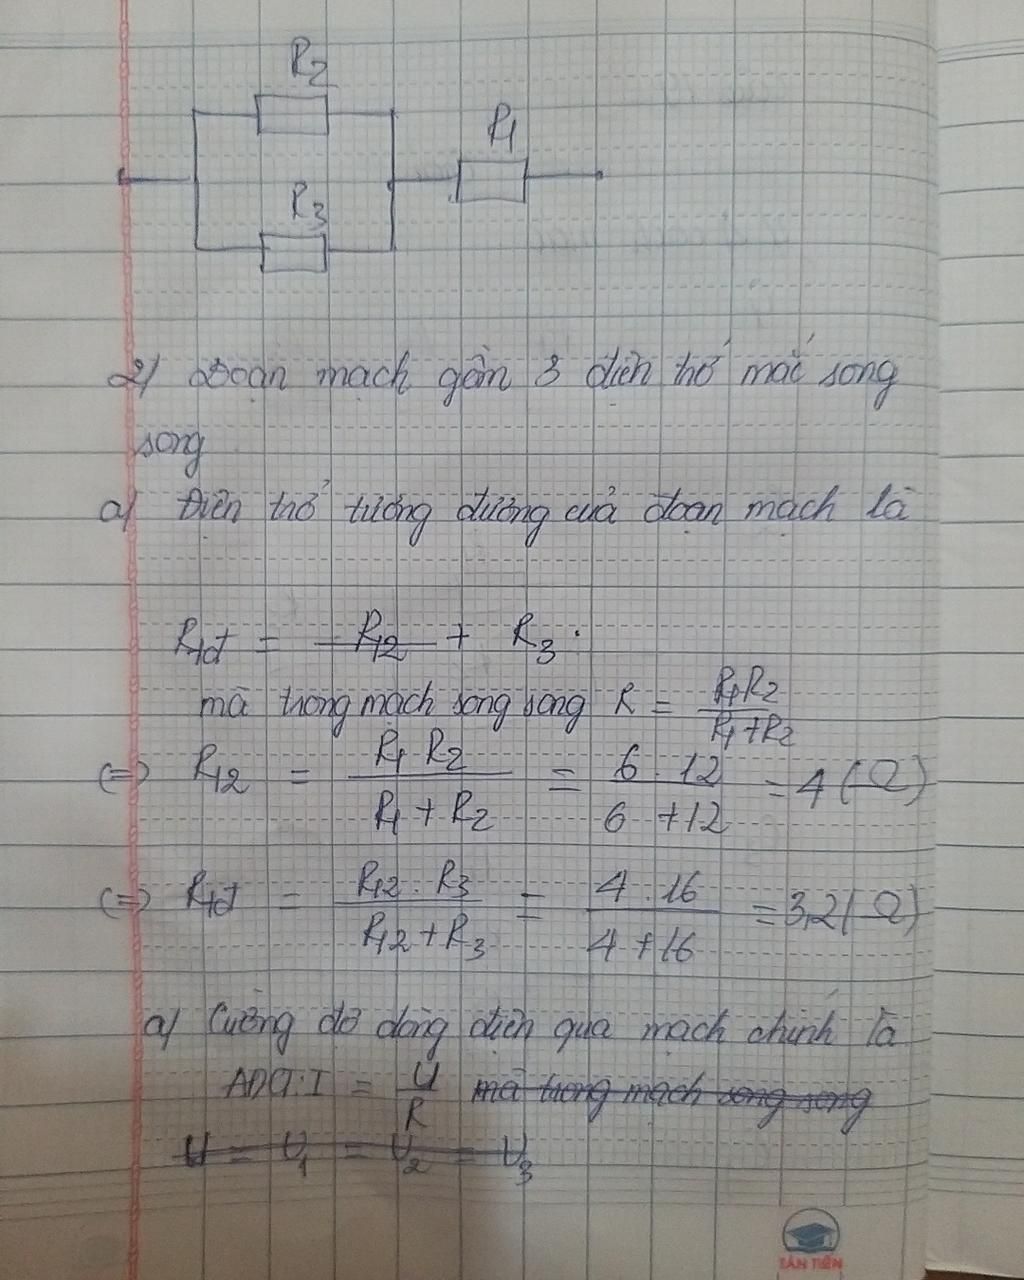 R2
R1
R3
2) Đoạn mạch gồm 3 điện trở mắc song
song
a) Điện trở tương đương của đoạn mạch là
Rtđ = R12 + R3.
mà trong mạch song song R = R1R2 / R1+R2
(=) R12 = R1 R2 / R1 + R2 = 6 . 12 / 6 + 12 = 4 (Ω)
(=) Rtđ = R12 . R3 / R12 + R3 = 4 . 16 / 4 + 16 = 3,2 (Ω)
a) Cường độ dòng điện qua mạch chính là
ADCT: I = U / R mà trong mạch song song
U = U1 = U2 = U3
TÂN TIẾN